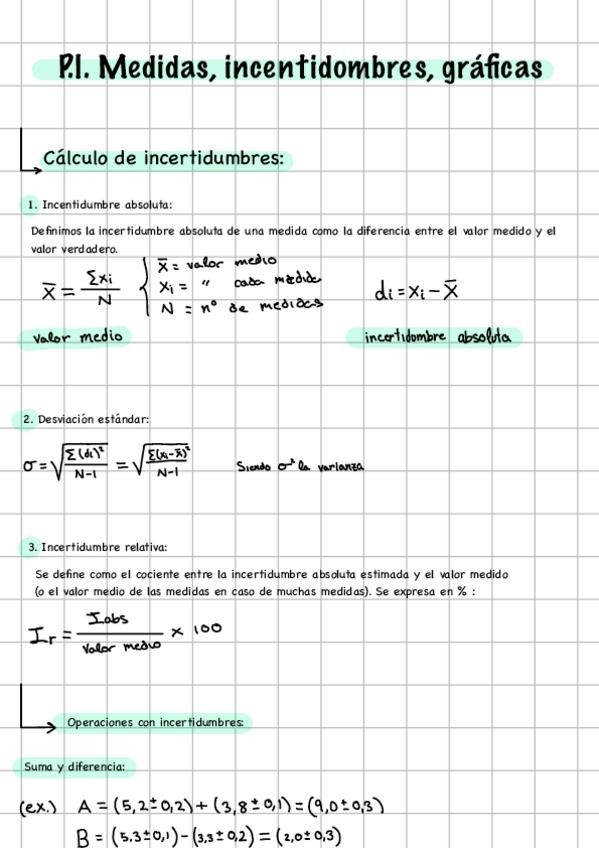 P.1. Medidas, incentidombres, gráficas
Cálculo de incertidumbres:
1. Incentidumbre absoluta:
Definimos la incertidumbre absoluta de una medida como la diferencia entre el valor medido y el
valor verdadero.
x̄ = Σxi / N
x̄ = valor medio
xi = " cada medida
N = nº de medidas
di = xi - x̄
valor medio
incertidombre absoluta
2. Desviación estándar:
σ = √(Σ(di)² / N-1) = √(Σ(xi-x̄)² / N-1) Siendo σ² la varianza
3. Incertidumbre relativa:
Se define como el cociente entre la incertidumbre absoluta estimada y el valor medido
(o el valor medio de las medidas en caso de muchas medidas). Se expresa en % :
Ir = Iabs / Valor medio x 100
Operaciones con incertidumbres:
Suma y diferencia:
(ex.) A = (5,2 ± 0,2) + (3,8 ± 0,1) = (9,0 ± 0,3)
B = (5.3 ± 0,1) - (3,3 ± 0,2) = (2,0 ± 0,3)